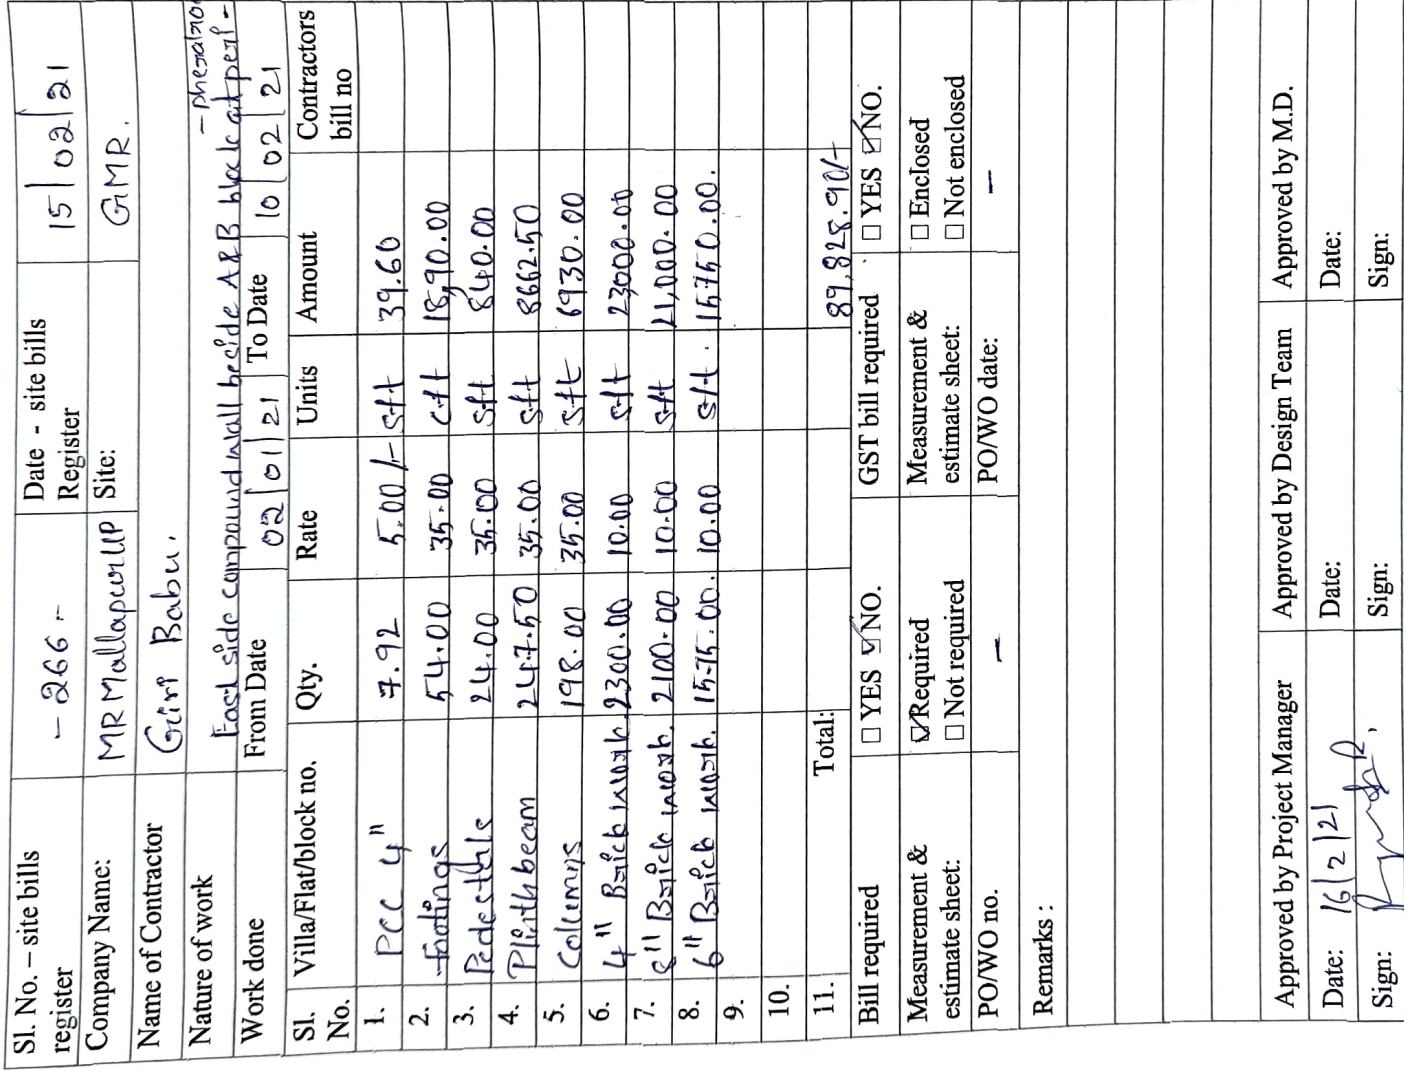 Sl. No. – site bills register - 266 - Date - site bills Register 15/02/21
Company Name: MR Mallapur LLP Site: GMR.
Name of Contractor Giri Babu.
Nature of work East side compound wall beside A&B block at peri-
Work done From Date 02/01/21 To Date 10/02/21
Sl. No. Villa/Flat/block no. Qty. Rate Units Amount Contractors bill no
1. PCC 4" 7.92 5.00/- Sft 39.60
2. Footings 54.00 35.00 Cft 18,90.00
3. Pedesthals 24.00 35.00 Sft 840.00
4. Plinthbeam 247.50 35.00 Sft 8662.50
5. Columns 198.00 35.00 Sft 6930.00
6. 4" Brick work. 2300.00 10.00 Sft 23000.00
7. Brick work. 2100.00 10.00 Sft 21,000.00
8. 6" Brick work. 1575.00. 10.00 Sft. 15750.00.
9.
10.
11. Total: 89,828.90/-
Bill required ☐ YES ☑ NO. GST bill required ☐ YES ☑ NO.
Measurement & estimate sheet: ☑ Required ☐ Not required Measurement & estimate sheet: ☐ Enclosed ☐ Not enclosed
PO/WO no. – PO/WO date: –
Remarks :
Approved by Project Manager Approved by Design Team Approved by M.D.
Date: 16/2/21 Date: Date:
Sign: Sign: Sign: